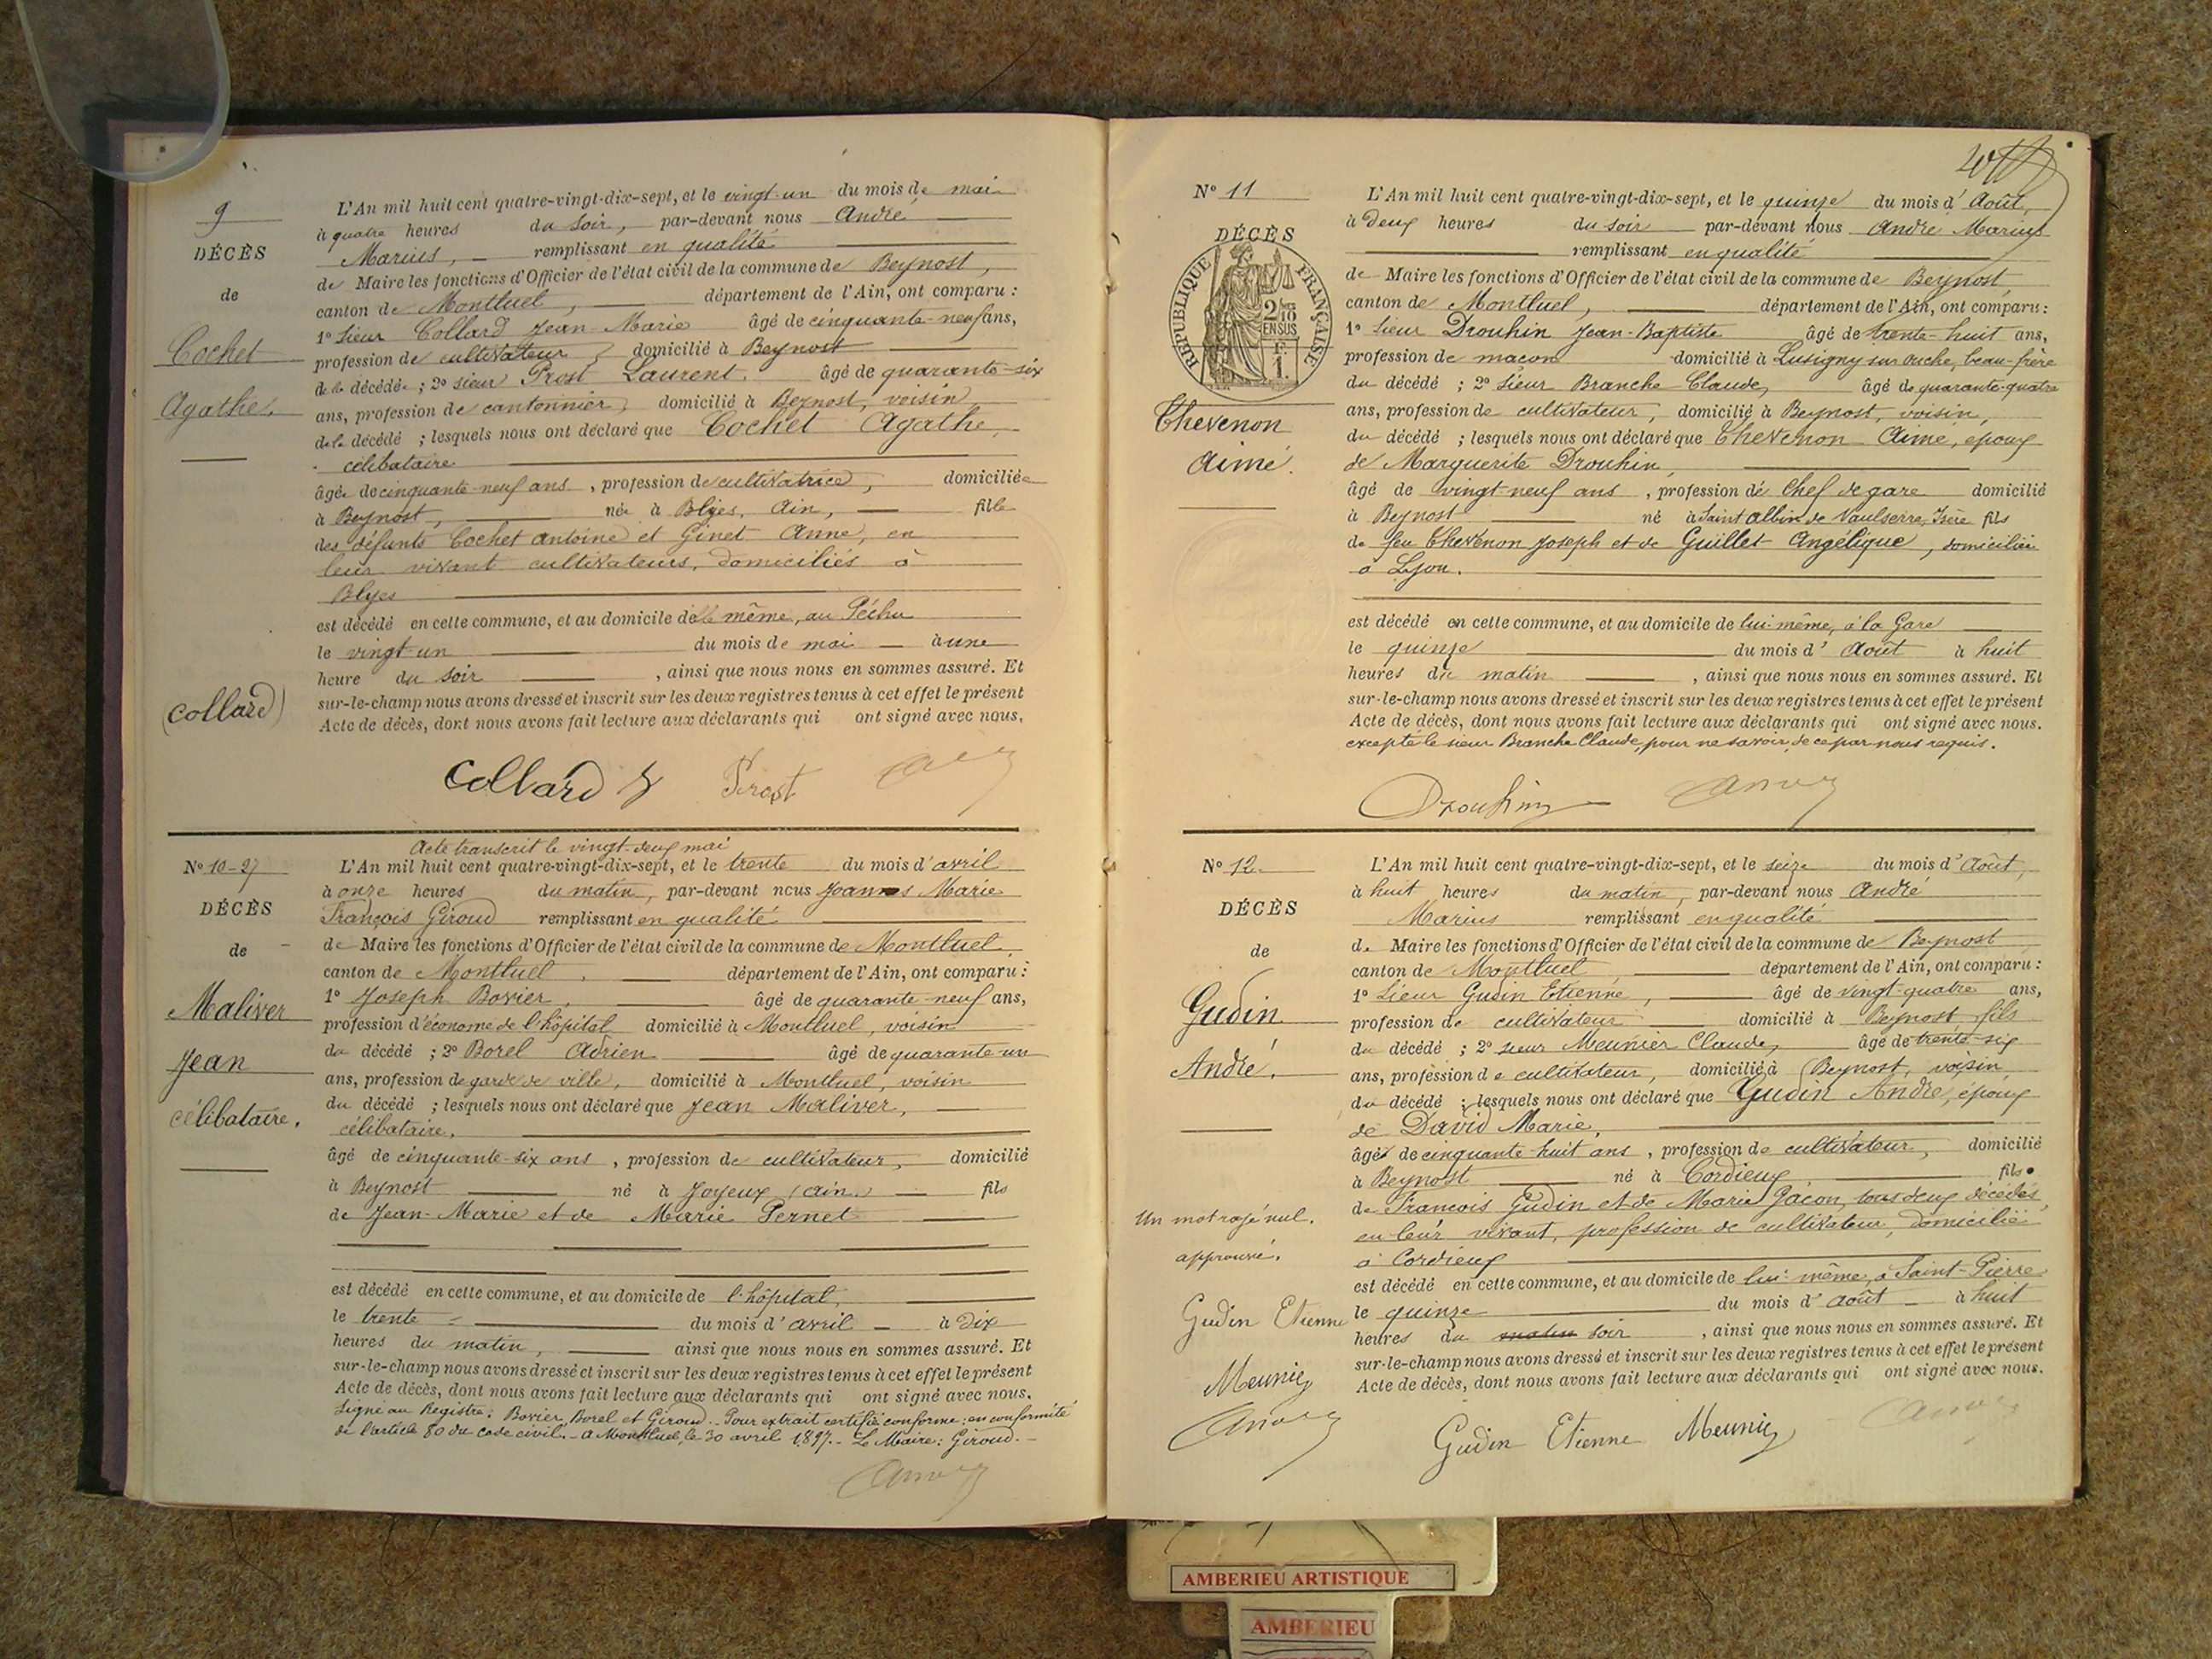 9
DÉCÈS
de
Cochet
Agathe.
L'An mil huit cent quatre-vingt-dix-sept, et le vingt-un du mois de mai
à quatre heures du soir, par-devant nous André
Marius, remplissant en qualité
de Maire les fonctions d'Officier de l'état civil de la commune de Beynost,
canton de Montluel, département de l'Ain, ont comparu :
1° Sieur Collard Jean-Marie âgé de cinquante-neuf ans,
profession de cultivateur, domicilié à Beynost
de la décédée ; 2° sieur Prost Laurent. âgé de quarante-six
ans, profession de cantonnier, domicilié à Beynost, voisin
de la décédé ; lesquels nous ont déclaré que Cochet Agathe,
célibataire
âgée de cinquante-neuf ans, profession de cultivatrice, domiciliée
à Beynost, née à Blyes, Ain, fille
des défunts Cochet Antoine et Ginet Anne, en
leur vivant cultivateurs, domiciliés à
Blyes
est décédé en cette commune, et au domicile d'elle même, au Péchu
le vingt-un du mois de mai à une
heure du soir, ainsi que nous nous en sommes assuré. Et
sur-le-champ nous avons dressé et inscrit sur les deux registres tenus à cet effet le présent
Acte de décès, dont nous avons fait lecture aux déclarants qui ont signé avec nous.
(Collard)
Collard Prost
N° 10-27
DÉCÈS
de
Maliver
Jean
célibataire.
Acte transcrit le vingt-deux mai
L'An mil huit cent quatre-vingt-dix-sept, et le trente du mois d'avril
à onze heures du matin, par-devant nous Joannès Marie
François Giroud remplissant en qualité
de Maire les fonctions d'Officier de l'état civil de la commune de Montluel,
canton de Montluel, département de l'Ain, ont comparu :
1° Joseph Bovier, âgé de quarante-neuf ans,
profession d'économe de l'hôpital domicilié à Montluel, voisin
du décédé ; 2° Borel Adrien âgé de quarante-un
ans, profession de garde de ville, domicilié à Montluel, voisin
du décédé ; lesquels nous ont déclaré que Jean Maliver,
célibataire,
âgé de cinquante-six ans, profession de cultivateur, domicilié
à Beynost né à Joyeux (Ain) fils
de Jean-Marie et de Marie Pernet
est décédé en cette commune, et au domicile de l'hôpital,
le trente du mois d'avril à dix
heures du matin, ainsi que nous nous en sommes assuré. Et
sur-le-champ nous avons dressé et inscrit sur les deux registres tenus à cet effet le présent
Acte de décès, dont nous avons fait lecture aux déclarants qui ont signé avec nous.
Signé au Registre : Bovier, Borel et Giroud. - Pour extrait certifié conforme : en conformité
de l'article 80 du code civil. - A Montluel, le 30 avril 1897. - Le Maire : Giroud. -
N° 11
DÉCÈS
RÉPUBLIQUE FRANÇAISE
2/10
EN SUS
F.
1.
Chevenon
Aimé.
L'An mil huit cent quatre-vingt-dix-sept, et le quinze du mois d'Août,
à deux heures du soir par-devant nous André Marius
remplissant en qualité
de Maire les fonctions d'Officier de l'état civil de la commune de Beynost,
canton de Montluel, département de l'Ain, ont comparu :
1° Sieur Drouhin Jean-Baptiste âgé de trente-huit ans,
profession de maçon domicilié à Lusigny sur Ouche, beau-frère
du décédé ; 2° Sieur Branche Claude, âgé de quarante-quatre
ans, profession de cultivateur, domicilié à Beynost, voisin,
du décédé ; lesquels nous ont déclaré que Chevenon Aimé, époux
de Marguerite Drouhin,
âgé de vingt-neuf ans, profession de Chef de gare domicilié
à Beynost né à Saint Albin de Vaulserre, Isère fils
de feu Chevenon Joseph et de Guillet Angélique, domiciliée
à Lyon.
est décédé en cette commune, et au domicile de lui-même, à la Gare
le quinze du mois d'Août à huit
heures du matin, ainsi que nous nous en sommes assuré. Et
sur-le-champ nous avons dressé et inscrit sur les deux registres tenus à cet effet le présent
Acte de décès, dont nous avons fait lecture aux déclarants qui ont signé avec nous.
excepté le sieur Branche Claude, pour ne savoir, de ce par nous requis.
Drouhin
N° 12
DÉCÈS
de
Gudin
André.
L'An mil huit cent quatre-vingt-dix-sept, et le seize du mois d'Août,
à huit heures du matin, par-devant nous André
Marius remplissant en qualité
de Maire les fonctions d'Officier de l'état civil de la commune de Beynost
canton de Montluel département de l'Ain, ont comparu :
1° Sieur Gudin Etienne, âgé de vingt-quatre ans,
profession de cultivateur domicilié à Beynost fils
du décédé ; 2° sieur Meunier Claude, âgé de trente-six
ans, profession de cultivateur, domicilié à Beynost, voisin
du décédé ; lesquels nous ont déclaré que Gudin André, époux
de David Marie,
âgé de cinquante-huit ans, profession de cultivateur, domicilié
à Beynost né à Cordieux fils
de François Gudin et de Marie Jacon, tous deux décédés,
en leur vivant, profession de cultivateur, domiciliés
à Cordieux
est décédé en cette commune, et au domicile de lui-même, à Saint-Pierre
le quinze du mois d'août à huit
heures du matin soir, ainsi que nous nous en sommes assuré. Et
sur-le-champ nous avons dressé et inscrit sur les deux registres tenus à cet effet le présent
Acte de décès, dont nous avons fait lecture aux déclarants qui ont signé avec nous.
Un mot rayé nul.
approuvé.
Gudin Etienne
Meunier
Gudin Etienne Meunier
AMBERIEU ARTISTIQUE
AMBERIEU